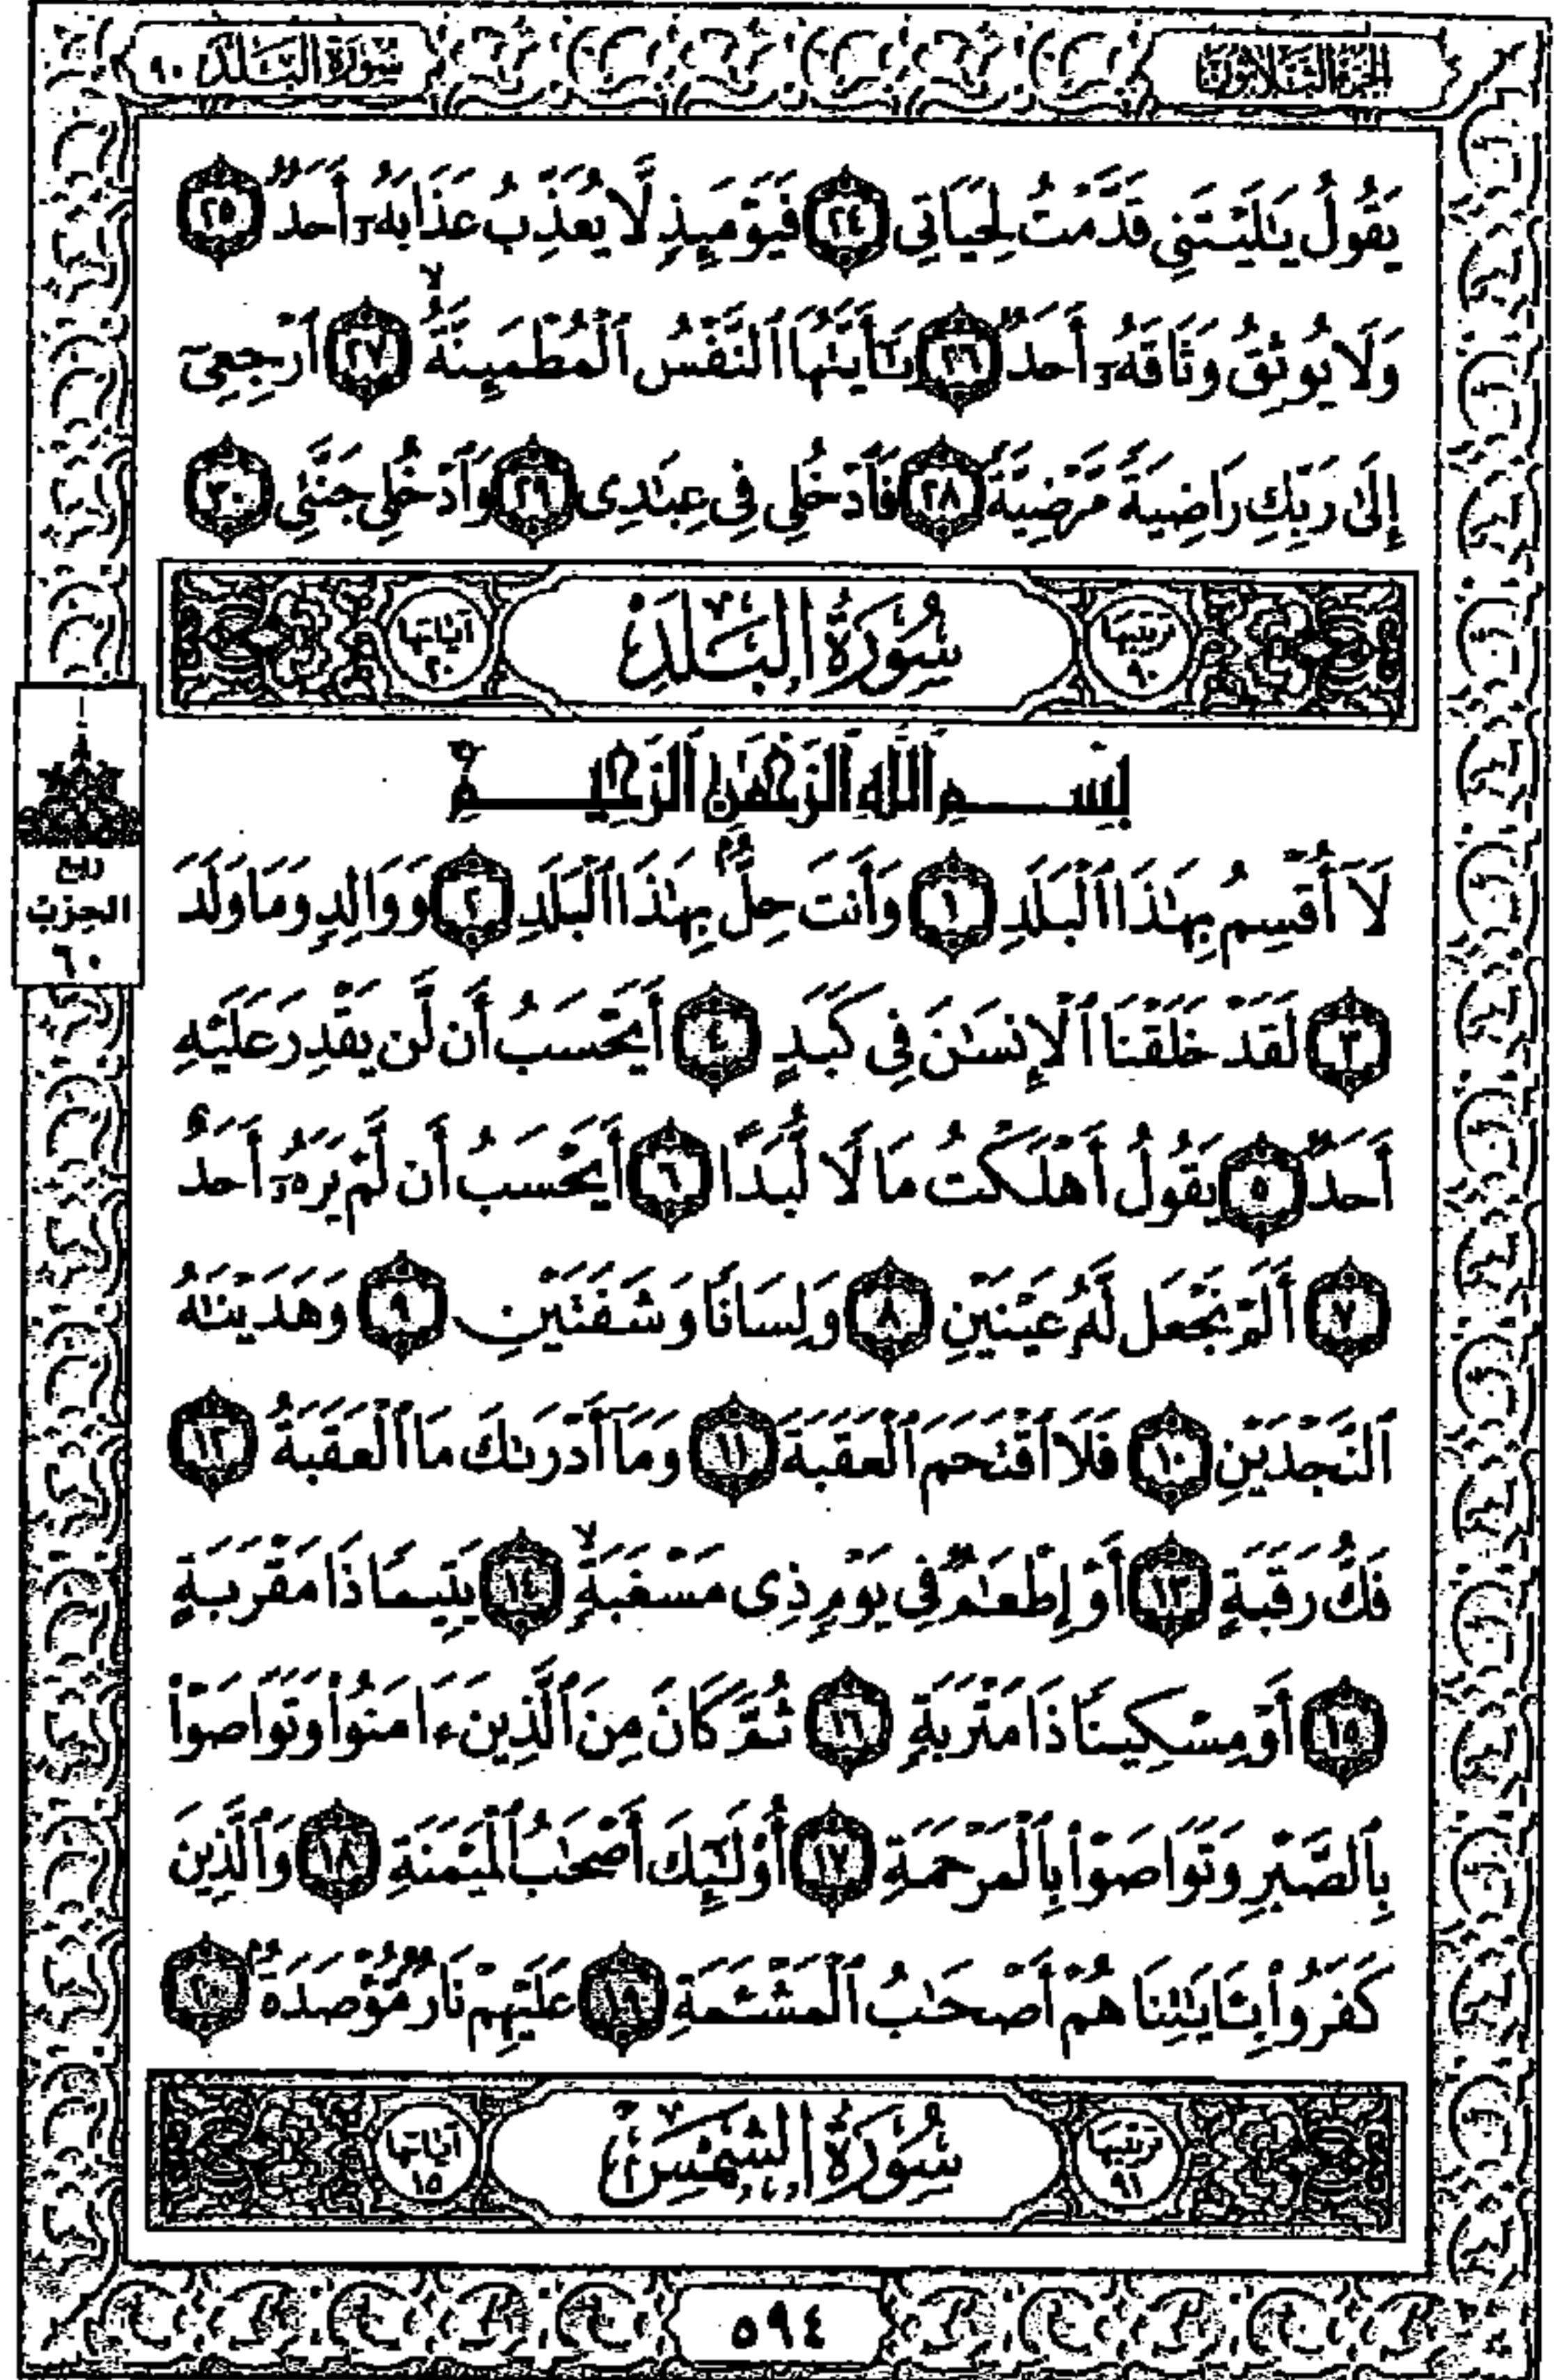 الجزء الثلاثون
سورة البلد ٩٠
يَقُولُ يَٰلَيْتَنِى قَدَّمْتُ لِحَيَاتِى ٢٤ فَيَوْمَئِذٍ لَّا يُعَذِّبُ عَذَابَهُۥٓ أَحَدٌ ٢٥
وَلَا يُوثِقُ وَثَاقَهُۥٓ أَحَدٌ ٢٦ يَٰٓأَيَّتُهَا ٱلنَّفْسُ ٱلْمُطْمَئِنَّةُ ۙ ٢٧ ٱرْجِعِىٓ
إِلَىٰ رَبِّكِ رَاضِيَةً مَّرْضِيَّةً ٢٨ فَٱدْخُلِى فِى عِبَٰدِى ٢٩ وَٱدْخُلِى جَنَّتِى ٣٠
ترتيبها ٩٠ سُورَةُ البَلَدِ آياتها ٢٠
بِسْمِ ٱللَّهِ ٱلرَّحْمَٰنِ ٱلرَّحِيمِ
لَآ أُقْسِمُ بِهَٰذَا ٱلْبَلَدِ ١ وَأَنتَ حِلٌّۢ بِهَٰذَا ٱلْبَلَدِ ٢ وَوَالِدٍ وَمَا وَلَدَ
ربع
الحزب
٦٠
٣ لَقَدْ خَلَقْنَا ٱلْإِنسَٰنَ فِى كَبَدٍ ٤ أَيَحْسَبُ أَن لَّن يَقْدِرَ عَلَيْهِ
أَحَدٌ ٥ يَقُولُ أَهْلَكْتُ مَالًا لُّبَدًا ٦ أَيَحْسَبُ أَن لَّمْ يَرَهُۥٓ أَحَدٌ
٧ أَلَمْ نَجْعَل لَّهُۥ عَيْنَيْنِ ٨ وَلِسَانًا وَشَفَتَيْنِ ٩ وَهَدَيْنَٰهُ
ٱلنَّجْدَيْنِ ١٠ فَلَا ٱقْتَحَمَ ٱلْعَقَبَةَ ١١ وَمَآ أَدْرَىٰكَ مَا ٱلْعَقَبَةُ ١٢
فَكُّ رَقَبَةٍ ١٣ أَوْ إِطْعَٰمٌ فِى يَوْمٍ ذِى مَسْغَبَةٍ ۙ ١٤ يَتِيمًا ذَا مَقْرَبَةٍ
١٥ أَوْ مِسْكِينًا ذَا مَتْرَبَةٍ ١٦ ثُمَّ كَانَ مِنَ ٱلَّذِينَ ءَامَنُوا۟ وَتَوَاصَوْا۟
بِٱلصَّبْرِ وَتَوَاصَوْا۟ بِٱلْمَرْحَمَةِ ١٧ أُو۟لَٰٓئِكَ أَصْحَٰبُ ٱلْمَيْمَنَةِ ١٨ وَٱلَّذِينَ
كَفَرُوا۟ بِـَٔايَٰتِنَا هُمْ أَصْحَٰبُ ٱلْمَشْـَٔمَةِ ١٩ عَلَيْهِمْ نَارٌ مُّؤْصَدَةٌۢ ٢٠
ترتيبها ٩١ سُورَةُ الشَّمْسِ آياتها ١٥
٥٩٤